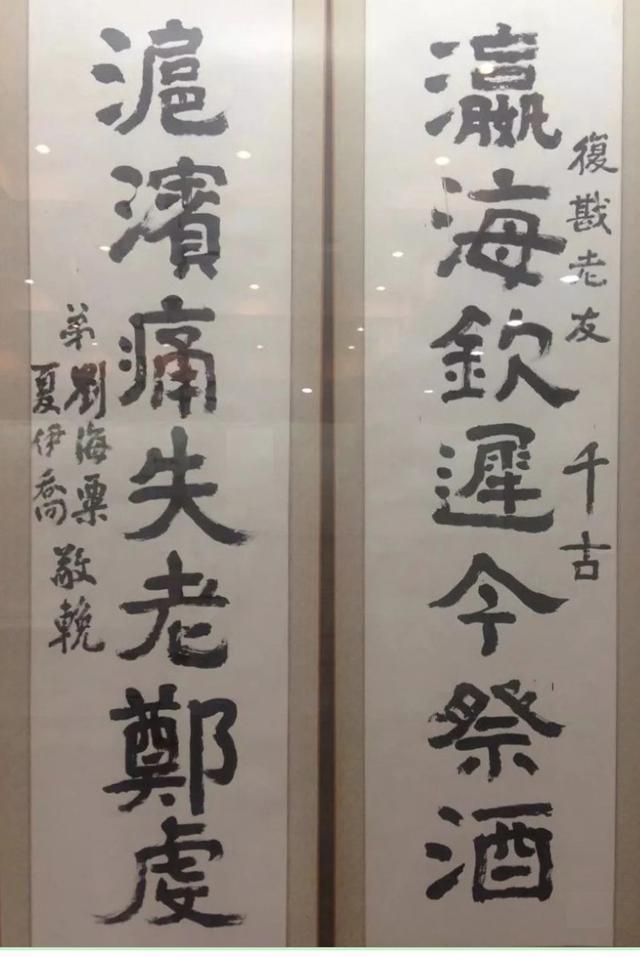 復戡老友千古
瀛海欽遲今祭酒
滬濱痛失老鄭虔
弟劉海粟
夏伊喬
敬輓